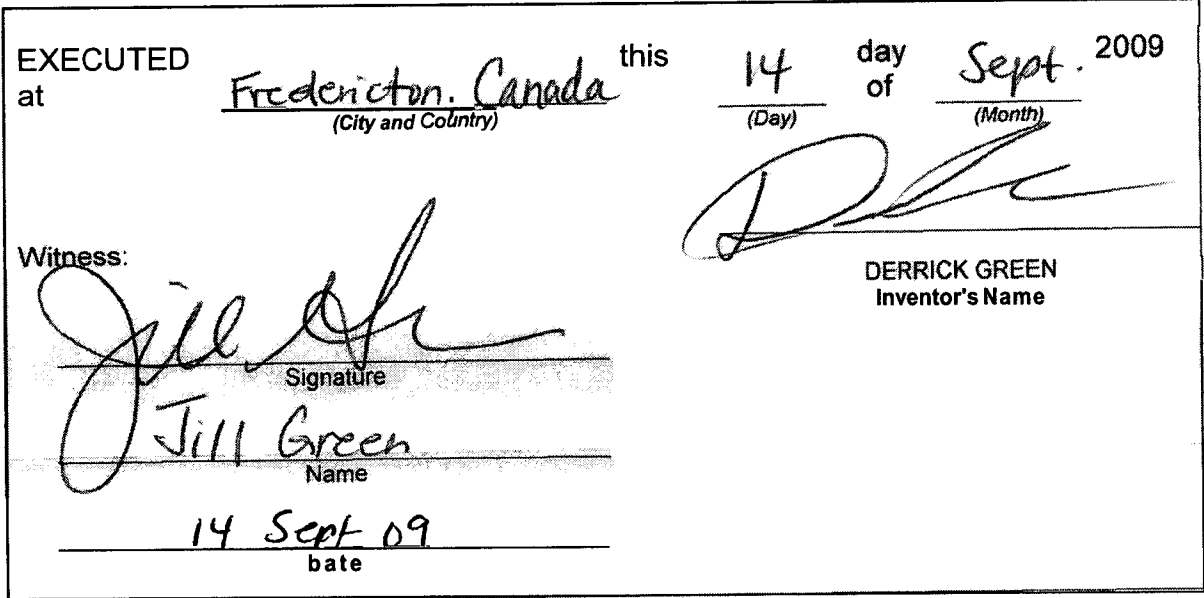 EXECUTED at Fredericton. Canada this 14 day of Sept. 2009
(City and Country) (Day) (Month)
Witness:
DERRICK GREEN
Inventor's Name
Jill
Signature
Jill Green
Name
14 Sept 09
bate